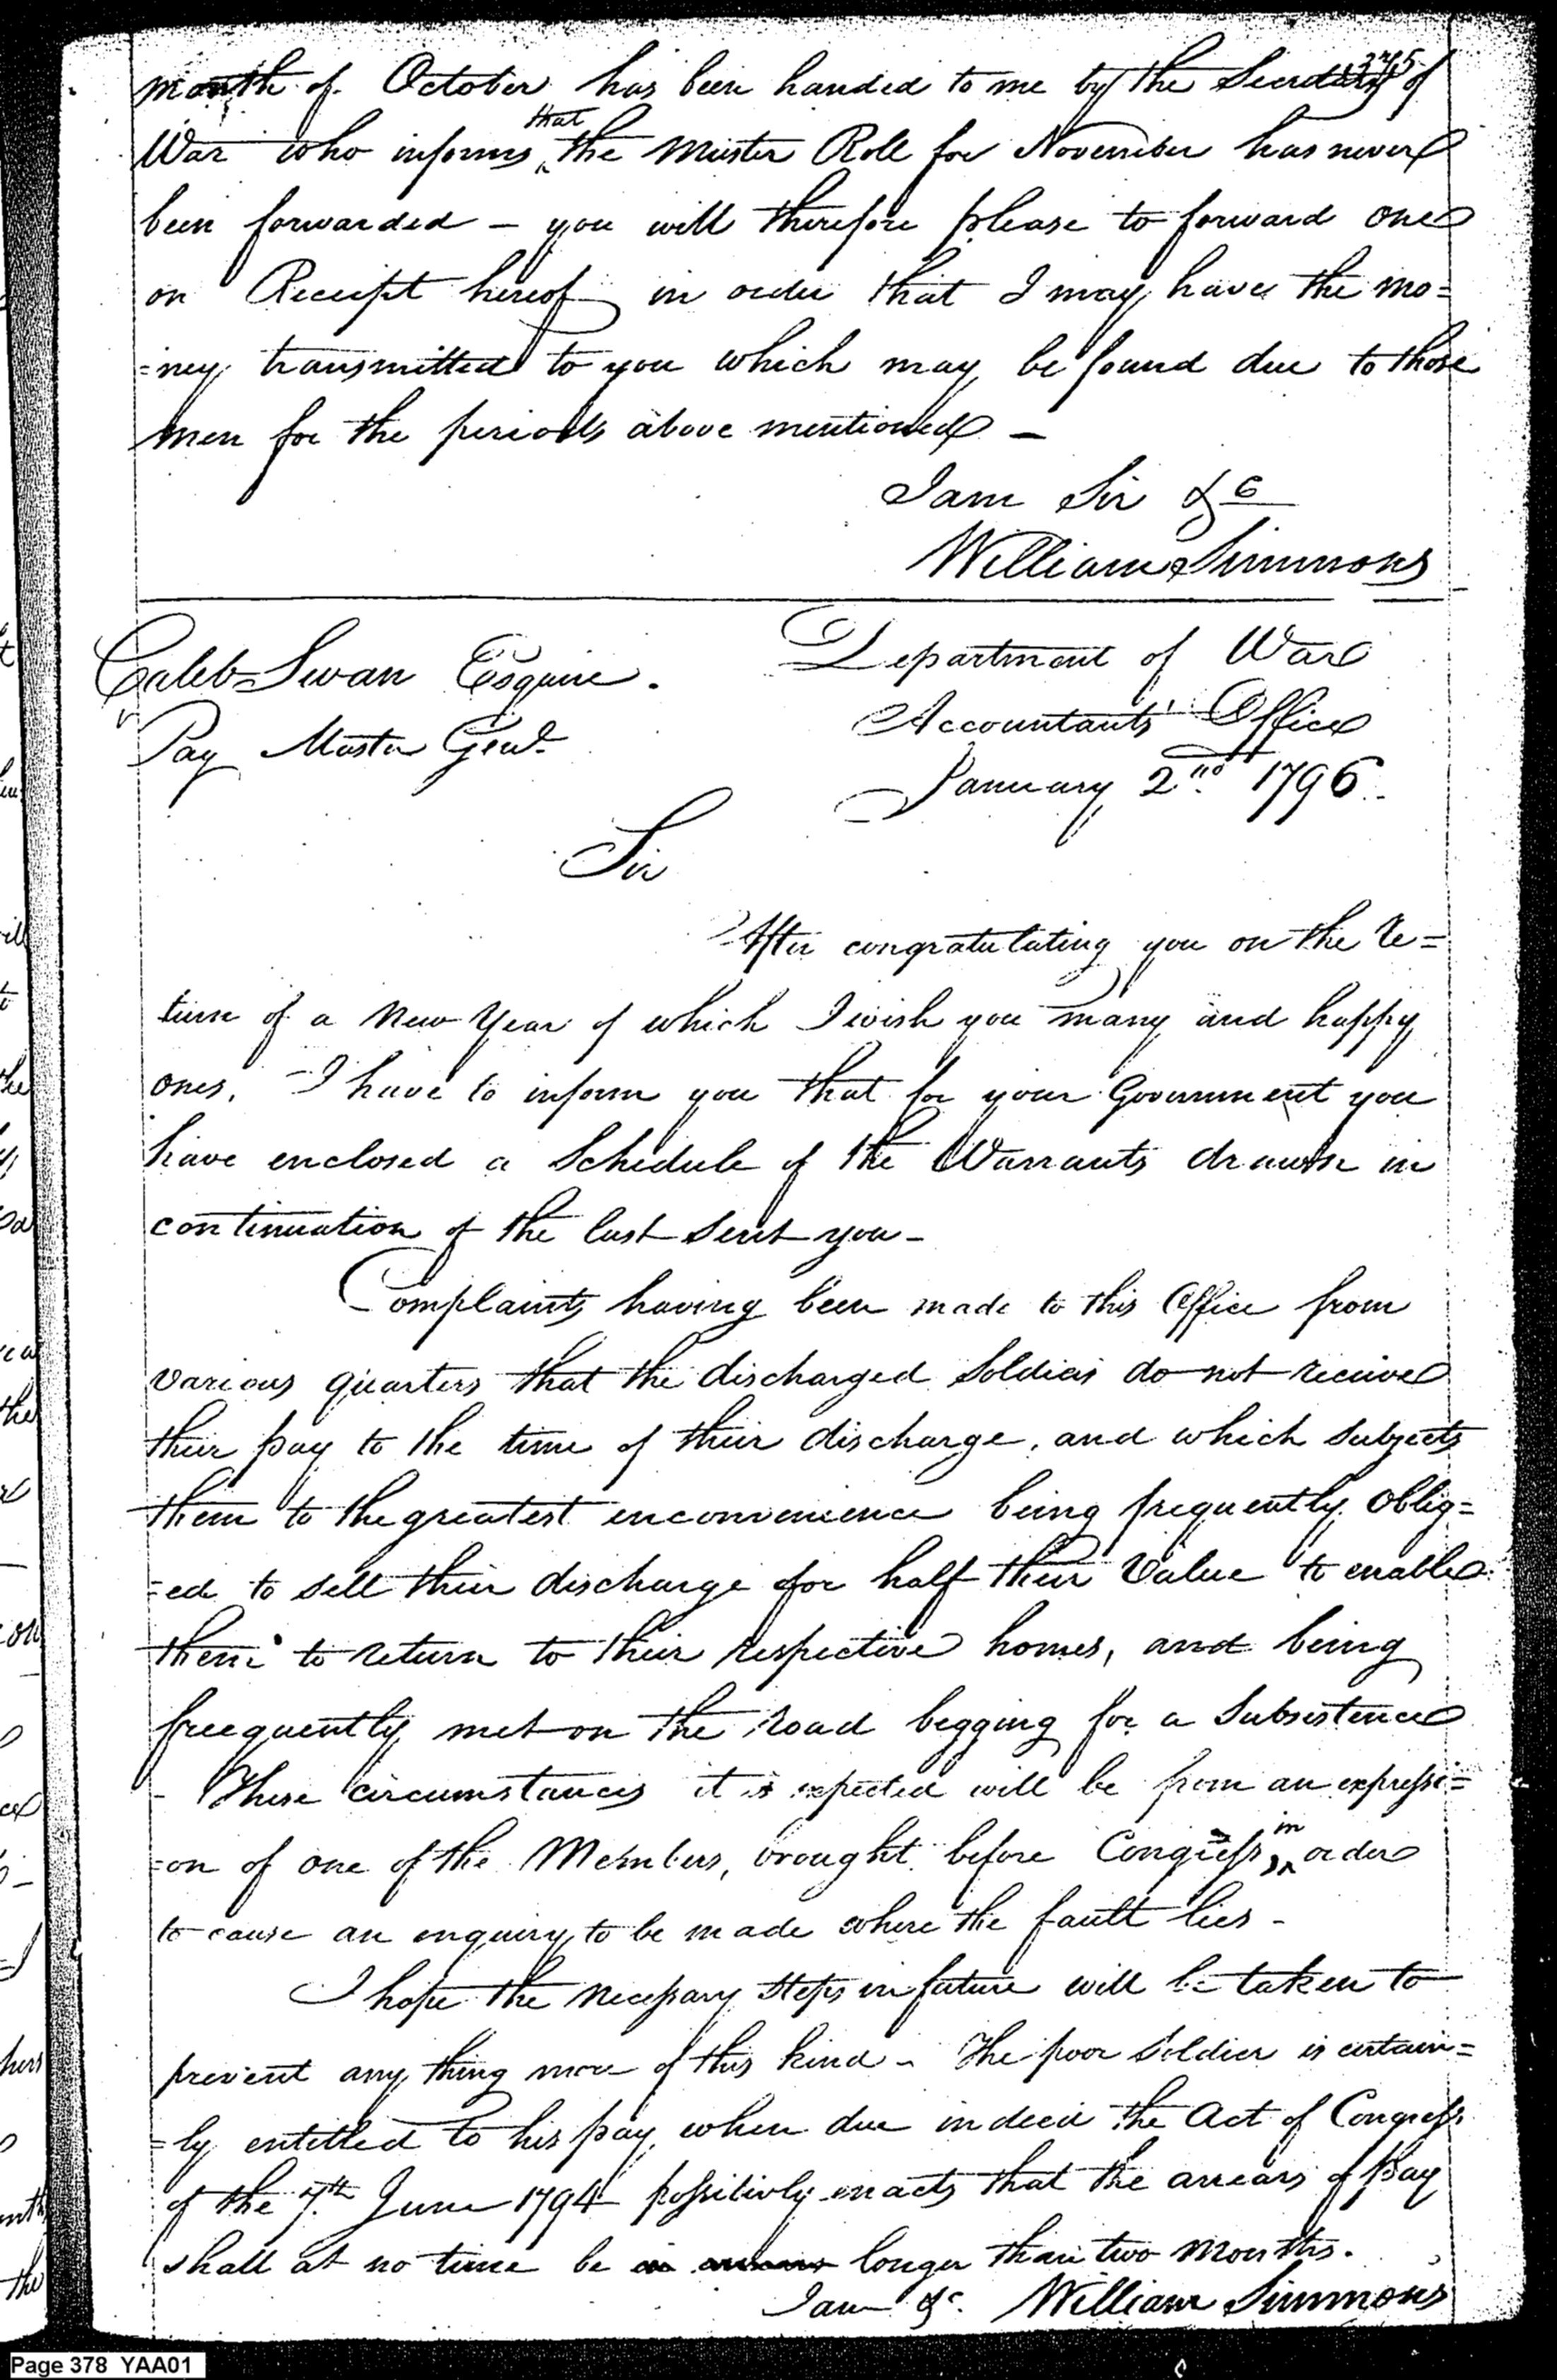 375
month of October has been handed to me by the Secretary of
War who informs that the Muster Roll for November has never
been forwarded – you will therefore please to forward one
on Receipt hereof in order that I may have the mo=
=ney transmitted to you which may be found due to those
men for the periods above mentioned –
I am Sir &c
William Simmons
Caleb Swan Esquire.
Pay Master Genl.
Department of War
Accountants' Office
January 2nd 1796.
Sir
After congratulating you on the re=
turn of a New Year of which I wish you many and happy
ones, I have to inform you that for your Government you
have enclosed a Schedule of the Warrants drawn in
continuation of the last sent you –
Complaints having been made to this Office from
various quarters that the discharged Soldiers do not receive
their pay to the time of their discharge, and which subjects
them to the greatest inconvenience being frequently oblig=
=ed to sell their discharge for half their Value to enable
them to return to their respective homes, and being
freequently met on the road begging for a Subsistence
- These circumstances it is expected will be from an expressi=
=on of one of the Members, brought before Congress, in order
to cause an enquiry to be made where the fault lies –
I hope the necessary steps in future will be taken to
prevent any thing more of this kind – The poor Soldier is certain=
=ly entitled to his pay when due indeed the Act of Congress
of the 7th June 1794 possitively enacts that the arrears of Pay
shall at no time be longer than two Months.
I am &c. William Simmons
Page 378 YAA01